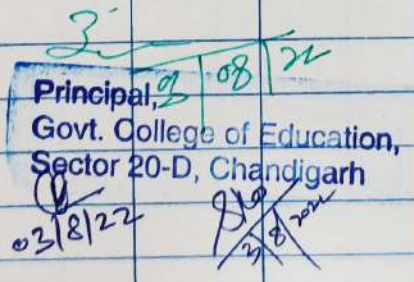 3 08 22
Principal,
Govt. College of Education,
Sector 20-D, Chandigarh
03/8/22
3/8/2022